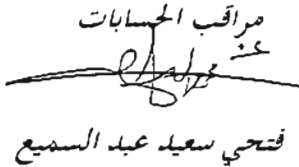 مراقب الحسابات
عنـ
فتحي سعيد عبد السميع